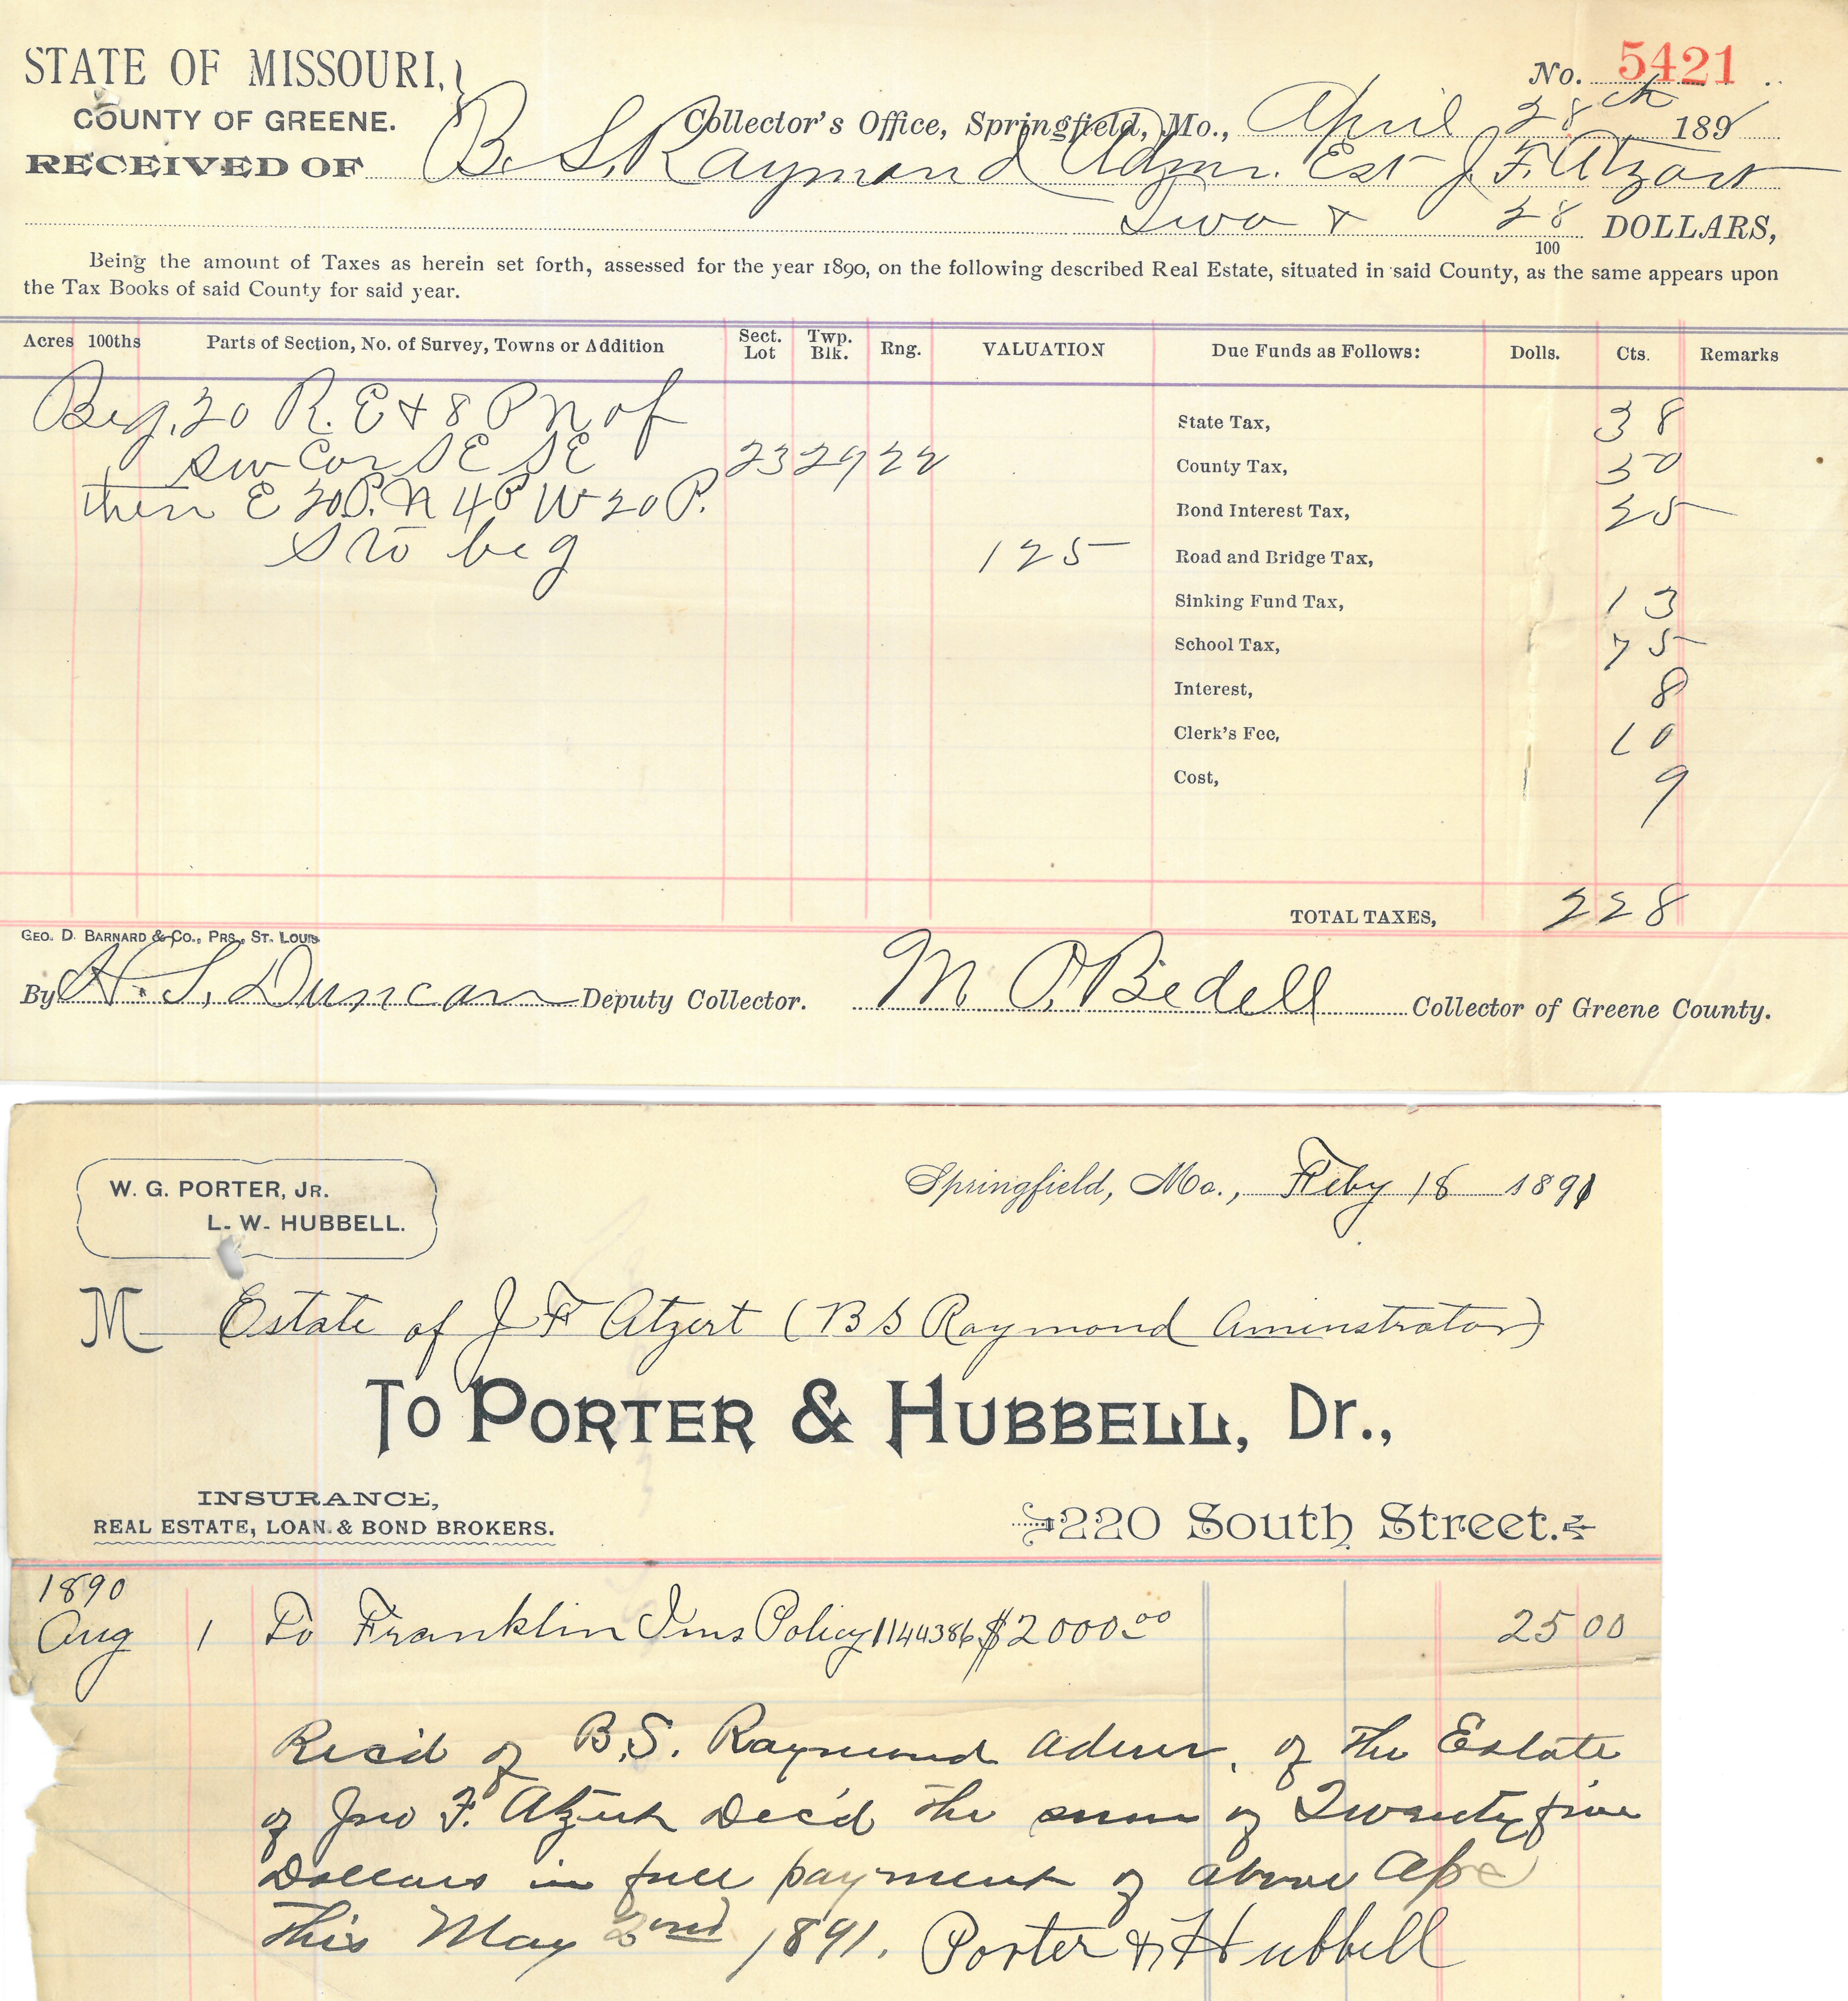 STATE OF MISSOURI,
No. 5421
COUNTY OF GREENE.
Collector's Office, Springfield, Mo., April 28th 1891
RECEIVED OF B. S. Raymond Admr. Est J. F. Atzert
Two & 28/100 DOLLARS,
Being the amount of Taxes as herein set forth, assessed for the year 1890, on the following described Real Estate, situated in said County, as the same appears upon
the Tax Books of said County for said year.
Acres 100ths Parts of Section, No. of Survey, Towns or Addition Sect. Lot Twp. Blk. Rng. VALUATION Due Funds as Follows: Dolls. Cts. Remarks
Beg. 20 R. E & 8 P N of
State Tax, 38
SW Cor SE SE 23 29 22
County Tax, 50
then E 20 P. N 4 P W 20 P.
Bond Interest Tax, 25
S to beg 125
Road and Bridge Tax,
Sinking Fund Tax, 13
School Tax, 75
Interest, 8
Clerk's Fee, 10
Cost, 9
TOTAL TAXES, 2 28
GEO. D. BARNARD & CO., PRS., ST. LOUIS
By H. S. Duncan Deputy Collector. M. O. Bedell Collector of Greene County.
W. G. PORTER, JR.
L. W. HUBBELL.
Springfield, Mo., Feby 18 1891
M Estate of J F Atzert (B S Raymond Aminstrator)
To PORTER & HUBBELL, Dr.,
INSURANCE,
REAL ESTATE, LOAN & BOND BROKERS.
220 South Street.
1890
Aug 1 To Franklin Ins Policy 1144386 $2000.00 25 00
Rec'd of B. S. Raymond Admr. of the Estate
of Jno F. Atzert Dec'd the sum of Twenty five
Dollars in full payment of above a/c
this May 2nd 1891. Porter & Hubbell